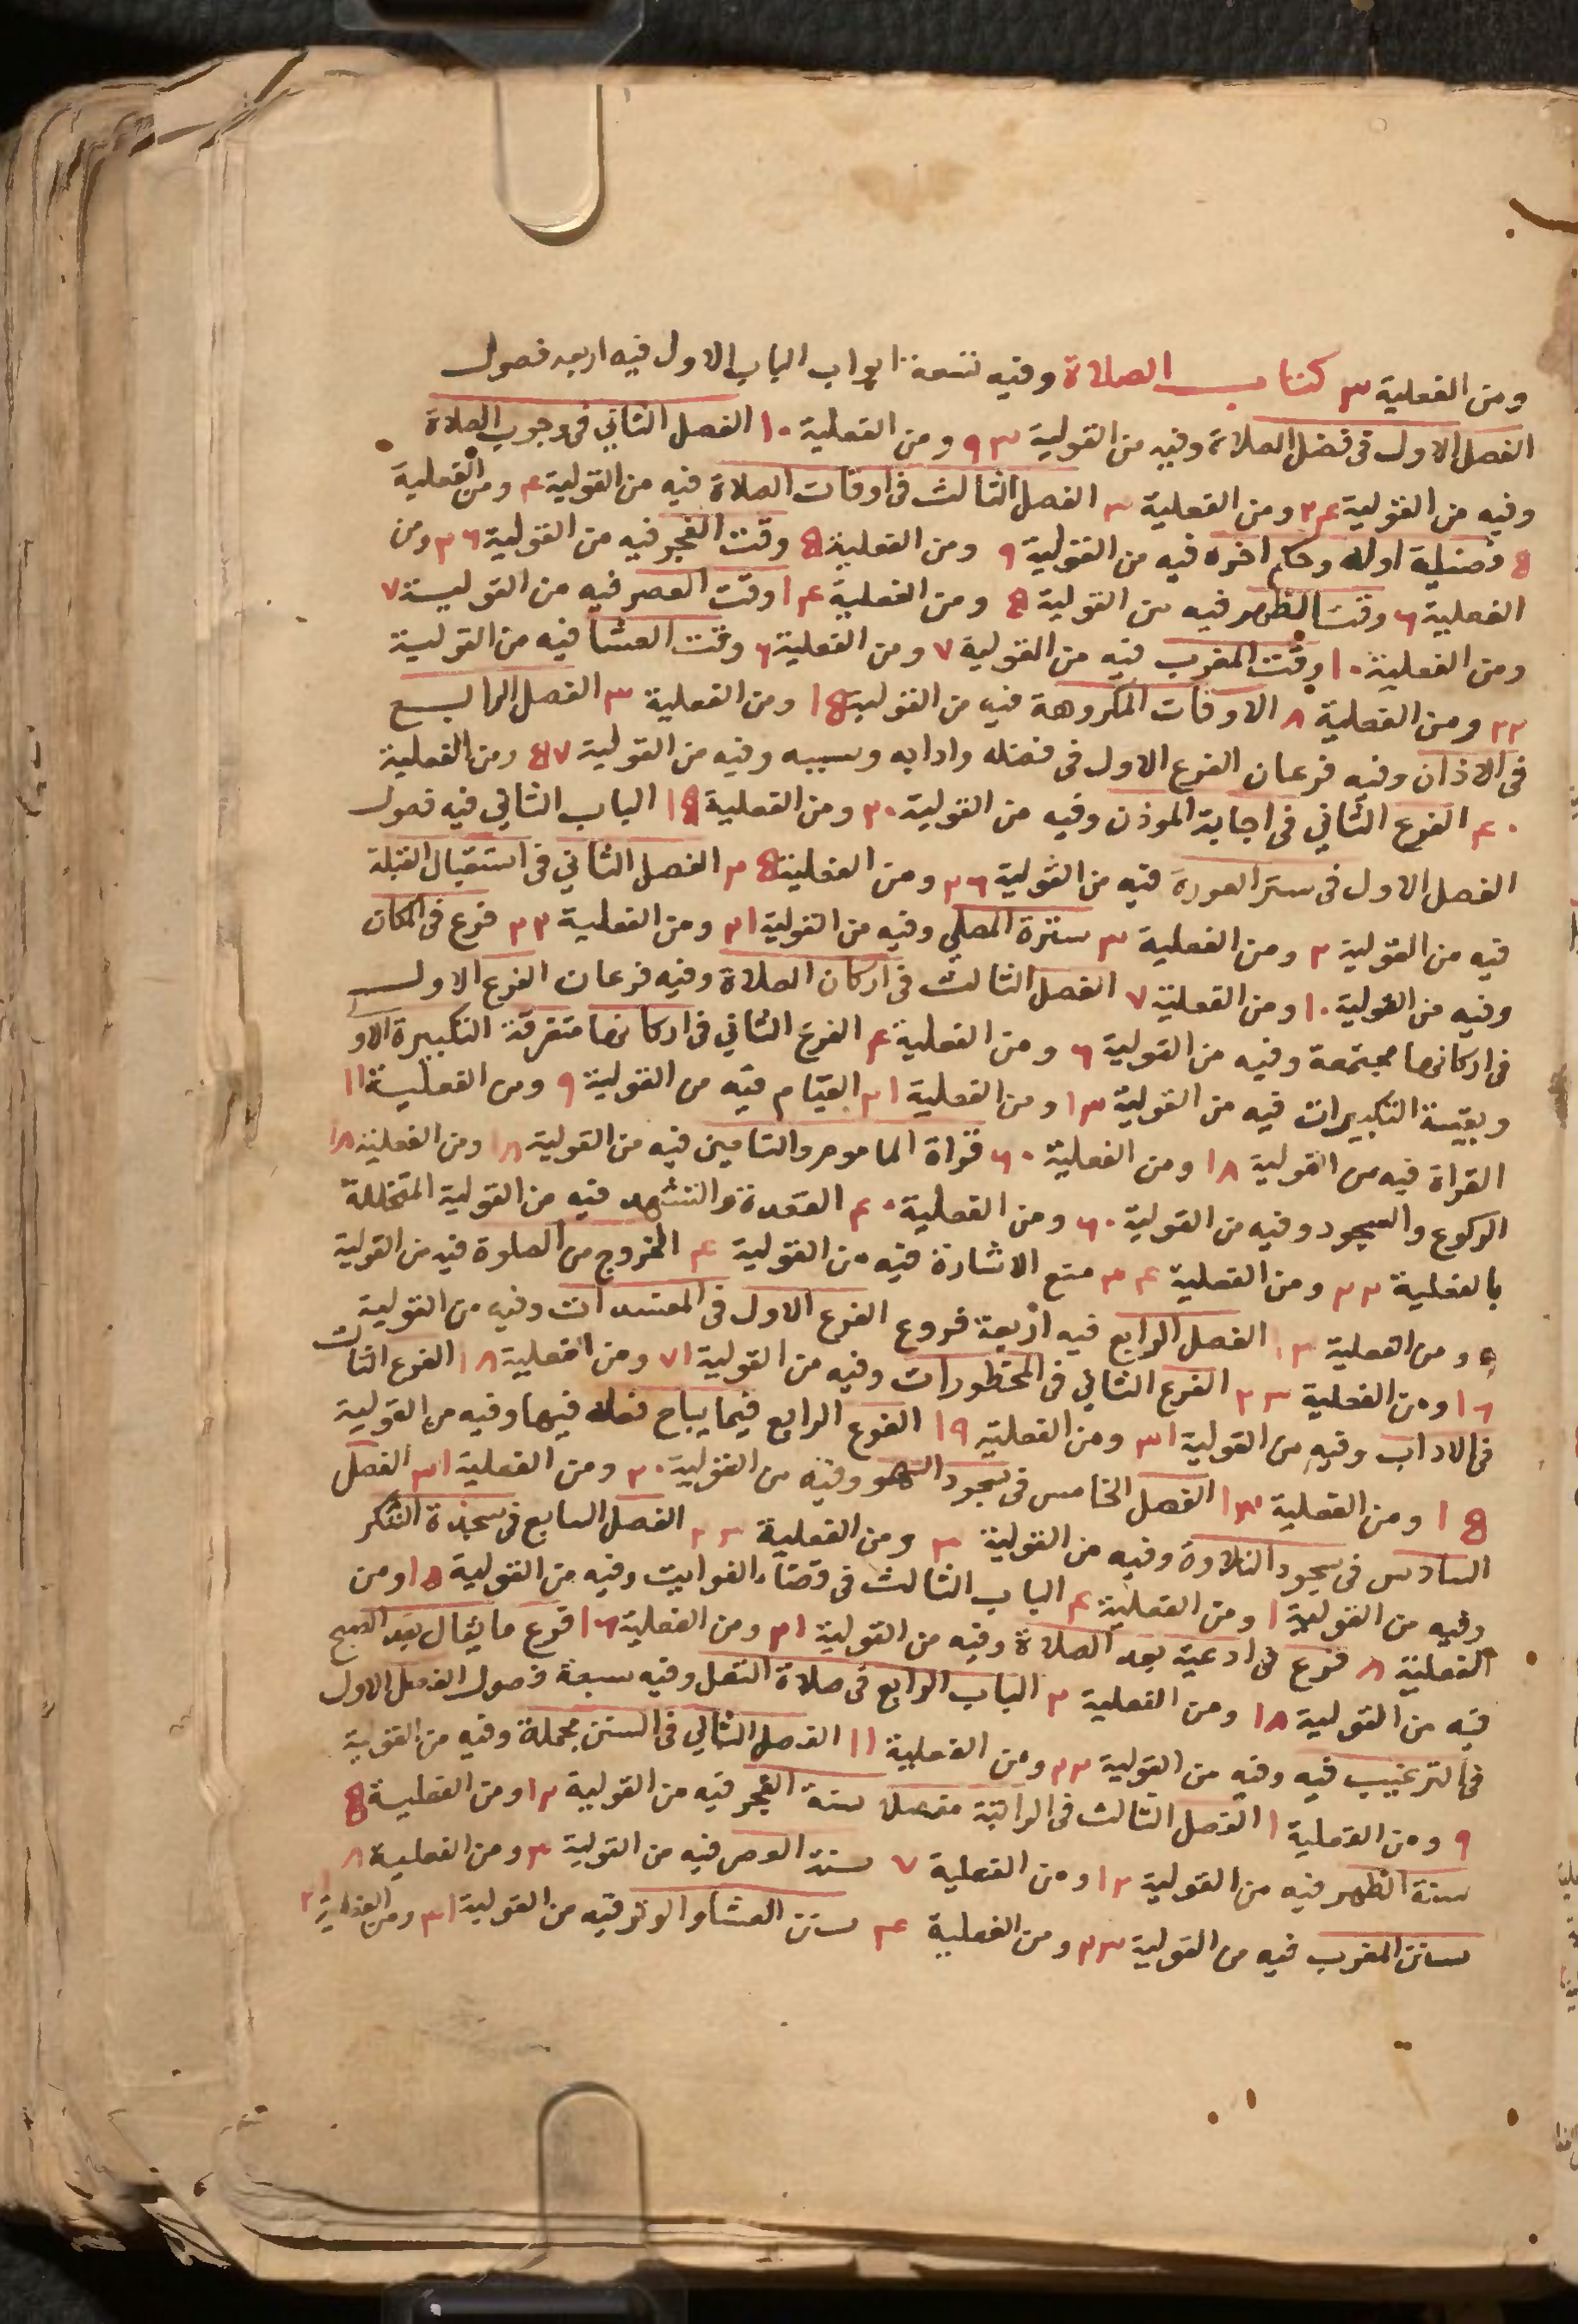 ومن الفعلية ٣ كتاب الصلاة وفيه تسعة ابواب الباب الاول فيه اربعه فصول
الفصل الاول فى فضل الصلاة وفيه من القولية ٩٣ ومن الفعلية ١٠ الفصل الثاني فى وجوب الصلاة
وفيه من القولية ٢٤ ومن الفعلية ٣ الفصل الثالث فى اوقات الصلاة فيه من القولية ٤ ومن الفعلية
٥ فضيلة اوله وحكم اخره فيه من القولية ٩ ومن الفعلية ٥ وقت الفجر فيه من القولية ٣٦ ومن
الفعلية ٦ وقت الظهر فيه من القولية ٥ ومن الفعلية ١٤ وقت العصر فيه من القولية ٧
ومن الفعلية ١٠ وقت المغرب فيه من القولية ٧ ومن الفعلية ٦ وقت العشا فيه من القولية
٢٢ ومن الفعلية ٨ الاوقات المكروهة فيه من القولية ١٥ ومن الفعلية ٣ الفصل الرابع
فى الاذان وفيه فرعان الفرع الاول فى فضله وادابه وسببه وفيه من القولية ٥٧ ومن الفعلية
٤٠ الفرع الثاني فى اجابة الموذن وفيه من القولية ٢٠ ومن الفعلية ١٥ الباب الثاني فيه فصول
الفصل الاول فى ستر العورة فيه من القولية ٢٦ ومن الفعلية ٢٥ الفصل الثاني فى استقبال القبلة
فيه من القولية ٢ ومن الفعلية ٣ سترة المصلي وفيه من القولية ٢١ ومن الفعلية ٢٣ فرع فى المكان
وفيه من القولية ١٠ ومن الفعلية ٧ الفصل الثالث فى اركان الصلاة وفيه فرعان الفرع الاول
فى اركانها مجتمعة وفيه من القولية ٦ ومن الفعلية ٤ الفرع الثاني فى اركانها متفرقة التكبيرة الاو
وبقية التكبيرات فيه من القولية ١٣ ومن الفعلية ٢١ القيام فيه من القولية ٩ ومن الفعلية ١١
القراة فيه من القولية ١٨ ومن الفعلية ٦٠ قراة الماموم والتامين فيه من القولية ١٨ ومن الفعلية ١٨
الركوع والسجود وفيه من القولية ٦٠ ومن الفعلية ٤٠ القعدة والتشهد فيه من القولية المتخللة
بالفعلية ٢٣ ومن الفعلية ٢٤ منع الاشارة فيه من القولية ٤ الخروج من الصلوة فيه من القولية
٥ ومن الفعلية ١٣ الفصل الرابع فيه اربعة فروع الفرع الاول فى المفسدات وفيه من القولية
١٦ ومن الفعلية ٢٣ الفرع الثاني فى المحظورات وفيه من القولية ٧١ ومن الفعلية ١٨ الفرع الثالث
فى الاداب وفيه من القولية ٣١ ومن الفعلية ١٩ الفرع الرابع فيما يباح فعله فيها وفيه من القولية
١٥ ومن الفعلية ١٣ الفصل الخامس فى سجود السهو وفيه من القولية ٢٠ ومن الفعلية ٣١ الفصل
السادس فى سجود التلاوة وفيه من القولية ٣ ومن الفعلية ٢٣ الفصل السابع فى سجدة الشكر
وفيه من القولية ١ ومن الفعلية ٤ الباب الثالث فى قضاء الفوايت وفيه من القولية ١٥ ومن
الفعلية ٨ فرع فى ادعية بعد الصلاة وفيه من القولية ٢١ ومن الفعلية ١٦ فرع ما يقال بعد الصبح
فيه من القولية ١٨ ومن الفعلية ٢ الباب الرابع فى صلاة النفل وفيه سبعة فصول الفصل الاول
فى الترغيب فيه وفيه من القولية ٢٣ ومن الفعلية ١١ الفصل الثاني فى السنن مجملة وفيه من القولية
٩ ومن الفعلية ١ الفصل الثالث فى الراتبة مفصلا سنة الفجر فيه من القولية ١٢ ومن الفعلية ٥
سنة الظهر فيه من القولية ١٢ ومن الفعلية ٧ سنة العصر فيه من القولية ٣ ومن الفعلية ٨
سنن المغرب فيه من القولية ٢٣ ومن الفعلية ٤ سنن العشا والوتر فيه من القولية ٣١ ومن الفعلية ٢١